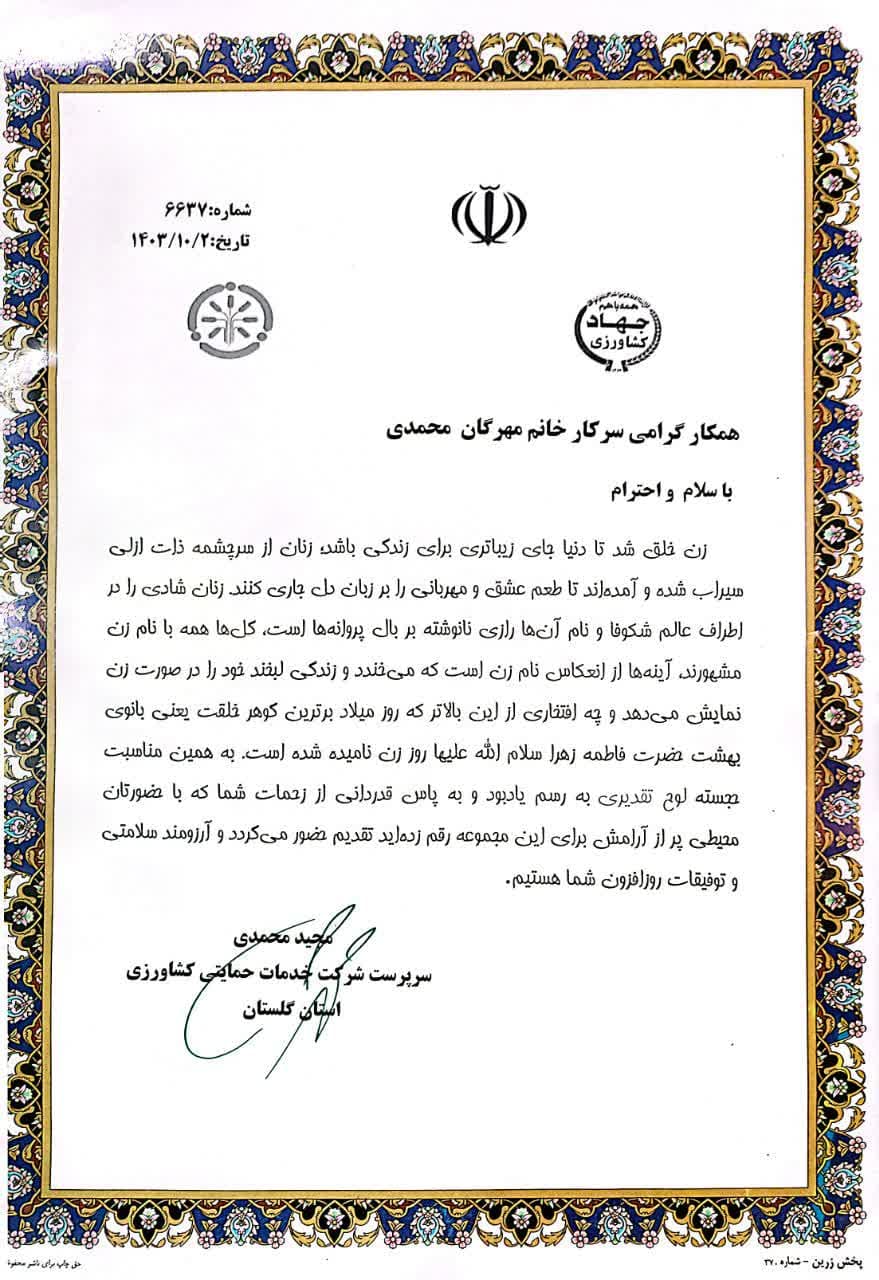 شماره:۶۶۳۷
تاریخ:۱۴۰۳/۱۰/۲
همه با هم
جهاد
کشاورزی
همکار گرامی سرکار خانم مهرگان محمدی
با سلام و احترام
زن خلق شد تا دنیا جای زیباتری برای زندگی باشد، زنان از سرچشمه ذات ازلی
سیراب شده و آمده‌اند تا طعم عشق و مهربانی را بر زبان دل جاری کنند. زنان شادی را در
اطراف عالم شکوفا و نام آن‌ها رازی نانوشته بر بال پروانه‌ها است، گل‌ها همه با نام زن
مشهورند، آینه‌ها از انعکاس نام زن است که می‌خندد و زندگی لبخند خود را در صورت زن
نمایش می‌دهد و چه افتخاری از این بالاتر که روز میلاد برترین گوهر خلقت یعنی بانوی
بهشت حضرت فاطمه زهرا سلام الله علیها روز زن نامیده شده است. به همین مناسبت
خجسته لوح تقدیری به رسم یادبود و به پاس قدردانی از زحمات شما که با حضورتان
محیطی پر از آرامش برای این مجموعه رقم زده‌اید تقدیم حضور می‌گردد و آرزومند سلامتی
و توفیقات روزافزون شما هستیم.
مجید محمدی
سرپرست شرکت خدمات حمایتی کشاورزی
استان گلستان
پخش زرین - شماره ۳۷۰
حق چاپ برای ناشر محفوظ